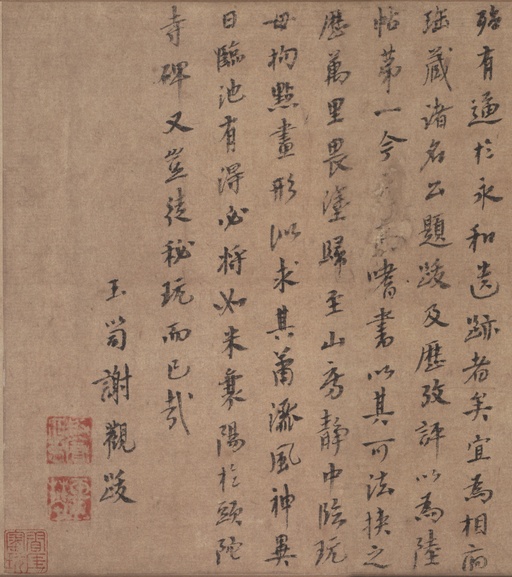 殆有逼於永和遺跡者矣宜爲相府
珎藏諸名公題跋及歷攷評以爲陸
帖第一今嗜書以其可法挾之
歷萬里畏塗歸至山房靜中臨玩
毋拘點畫形似求其蕭灑風神異
日臨池有得必將如米襄陽於頭陀
寺碑又豈徒秘玩而已哉
玉笥謝觀跋